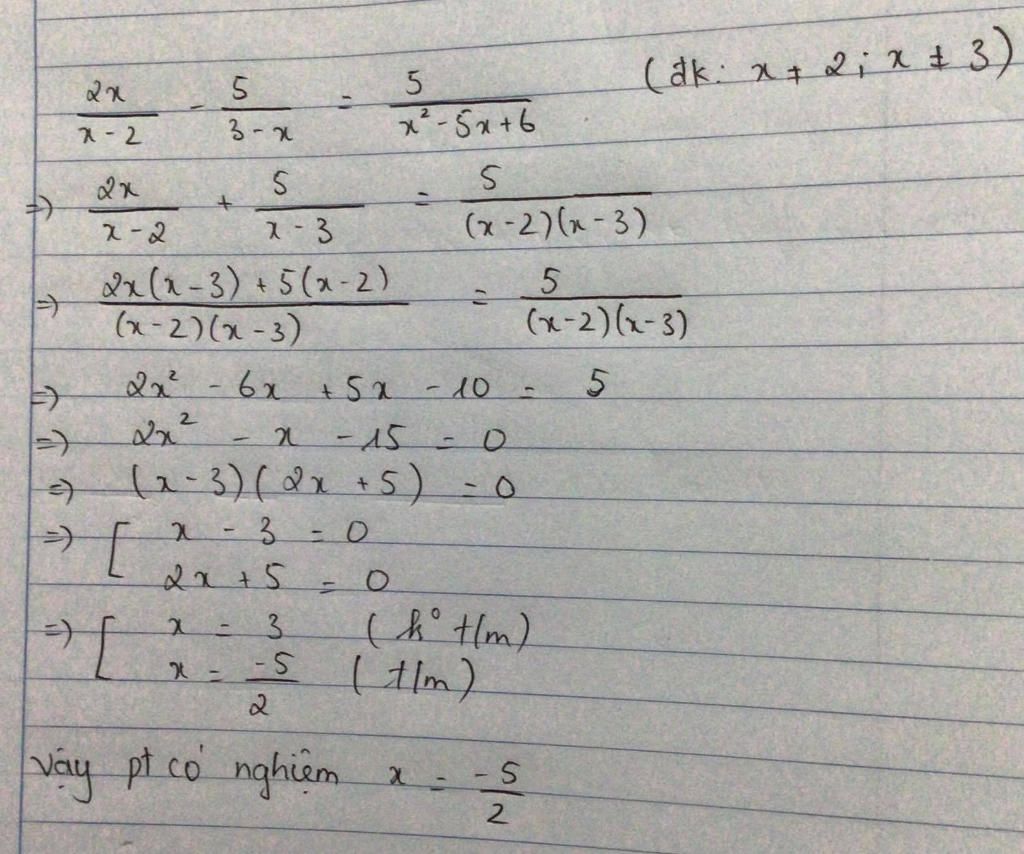 2x/(x-2) - 5/(3-x) = 5/(x²-5x+6) (đk: x ≠ 2; x ≠ 3)
=> 2x/(x-2) + 5/(x-3) = 5/((x-2)(x-3))
=> (2x(x-3) + 5(x-2))/((x-2)(x-3)) = 5/((x-2)(x-3))
=> 2x² - 6x + 5x - 10 = 5
=> 2x² - x - 15 = 0
=> (x-3)(2x+5) = 0
=> [ x - 3 = 0
2x + 5 = 0
=> [ x = 3 (k° t/m)
x = -5/2 (t/m)
vậy pt có nghiệm x = -5/2